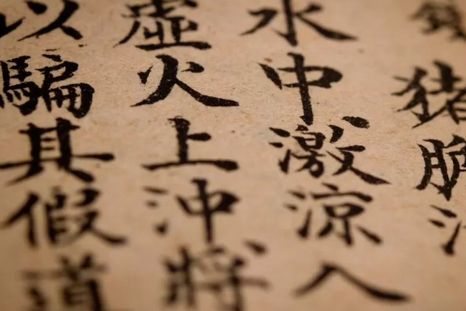 猪胆汁
水中激涼入
虛火上沖將
以騙其假道